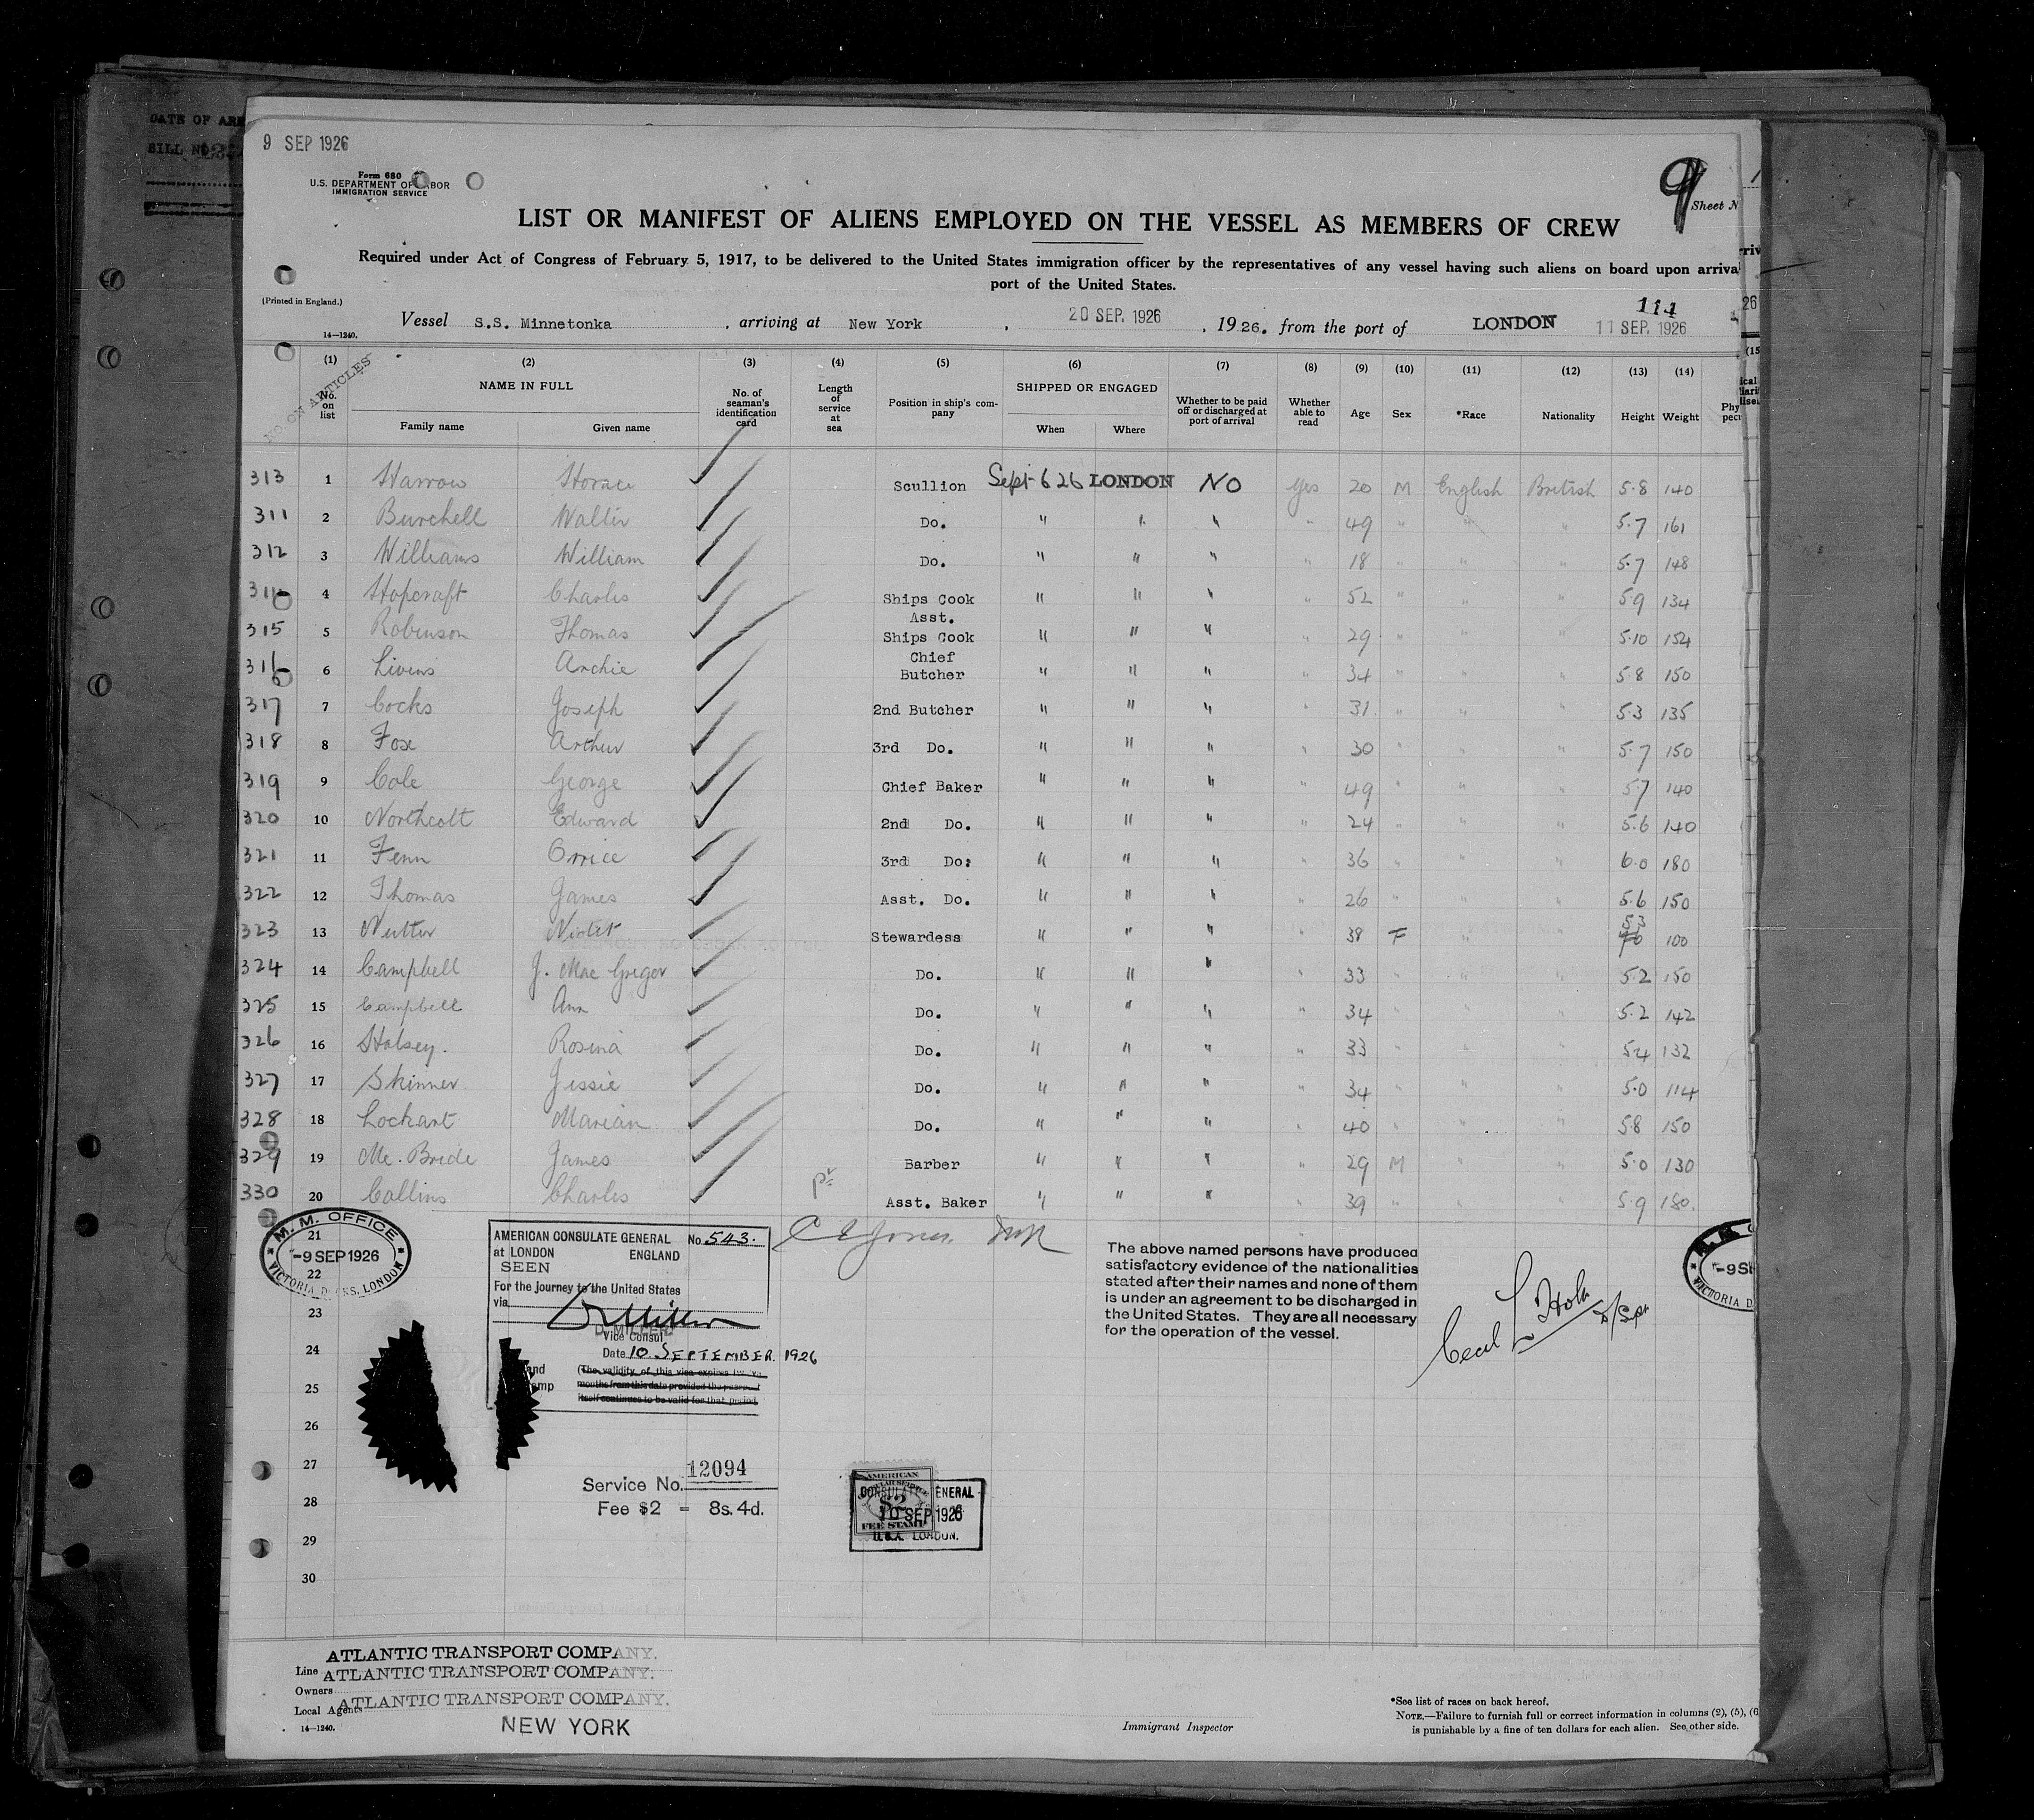 DATE OF ARR
BILL NO
9 SEP 1926
Form 680
U.S. DEPARTMENT OF LABOR
IMMIGRATION SERVICE
9
Sheet N
LIST OR MANIFEST OF ALIENS EMPLOYED ON THE VESSEL AS MEMBERS OF CREW
Required under Act of Congress of February 5, 1917, to be delivered to the United States immigration officer by the representatives of any vessel having such aliens on board upon arriva
port of the United States.
(Printed in England.)
114
14—1240.
Vessel S.S. Minnetonka, arriving at New York, 20 SEP. 1926, 1926. from the port of LONDON 11 SEP. 1926
NO ON ARTICLES
(1) (2) (3) (4) (5) (6) (7) (8) (9) (10) (11) (12) (13) (14) (15
No. on list NAME IN FULL No. of seaman's identification card Length of service at sea Position in ship's company SHIPPED OR ENGAGED Whether to be paid off or discharged at port of arrival Whether able to read Age Sex *Race Nationality Height Weight
Family name Given name When Where
313 1 Harrow Horace Scullion Sept 6 26 LONDON NO Yes 20 M English British 5.8 140
311 2 Burchell Walter Do. " " " " 49 " " " 5.7 161
312 3 Williams William Do. " " " " 18 " " " 5.7 148
4 Hopcraft Charles Ships Cook " " " " 52 " " " 5.9 134
315 5 Robinson Thomas Asst. Ships Cook " " " " 29 " " " 5.10 154
316 6 Livens Archie Chief Butcher " " " " 34 " " " 5.8 150
317 7 Cocks Joseph 2nd Butcher " " " " 31 " " " 5.3 135
318 8 Fox Arthur 3rd Do. " " " " 30 " " " 5.7 150
319 9 Cole George Chief Baker " " " " 49 " " " 5.7 140
320 10 Northcott Edward 2nd Do. " " " " 24 " " " 5.6 140
321 11 Fenn Orrice 3rd Do. " " " " 36 " " " 6.0 180
322 12 Thomas James Asst. Do. " " " " 26 " " " 5.6 150
323 13 Nutter Violet Stewardess " " " " 38 F " " 5.3 100
324 14 Campbell J. Mac Gregor Do. " " " " 33 " " " 5.2 150
325 15 Campbell Ann Do. " " " " 34 " " " 5.2 142
326 16 Halsey. Rosina Do. " " " " 33 " " " 5.4 132
327 17 Skinner Jessie Do. " " " " 34 " " " 5.0 114
328 18 Lockart Marian Do. " " " " 40 " " " 5.8 150
329 19 Mc. Bride James Barber " " " " 29 M " " 5.0 130
330 20 Collins Charles Asst. Baker " " " " 39 " " " 5.9 180
21
22
23
24
25
26
27
28
29
30
M. M. OFFICE
-9 SEP 1926
VICTORIA DOCKS, LONDON
AMERICAN CONSULATE GENERAL No. 543.
at LONDON ENGLAND
SEEN
For the journey to the United States
via
D. MILLER
Vice Consul
Date 10. SEPTEMBER. 1926
(The validity of this visa expires
months from this date provided the
itself continues to be valid for that period
Service No. 12094
Fee $2 = 8s. 4d.
AMERICAN
$2
FEE STAMP
CONSULATE GENERAL
10 SEP 1926
U.S.A. LONDON.
The above named persons have produced
satisfactory evidence of the nationalities
stated after their names and none of them
is under an agreement to be discharged in
the United States. They are all necessary
for the operation of the vessel.
-9 SE
VICTORIA D
ATLANTIC TRANSPORT COMPANY.
Line ATLANTIC TRANSPORT COMPANY.
Owners
Local Agents ATLANTIC TRANSPORT COMPANY.
NEW YORK
14—1240.
Immigrant Inspector
*See list of races on back hereof.
NOTE.—Failure to furnish full or correct information in columns (2), (5), (6
is punishable by a fine of ten dollars for each alien. See other side.